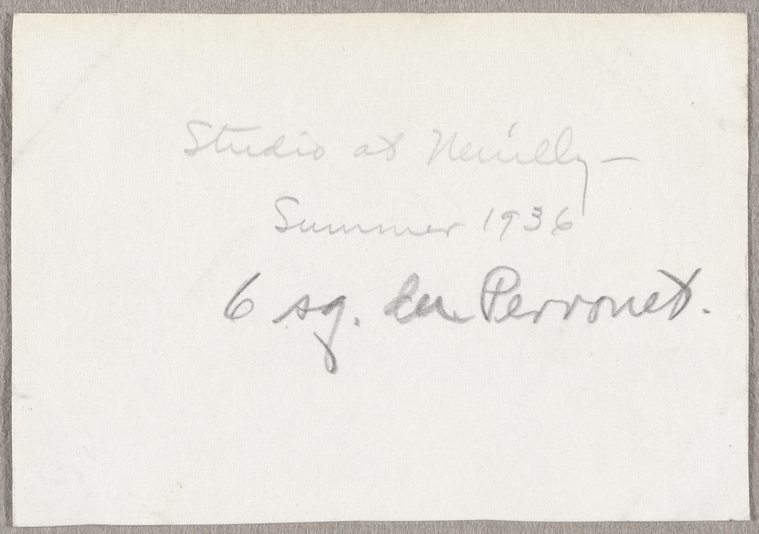 Studio at Neuilly –
Summer 1936
6 sq. du Perronet.